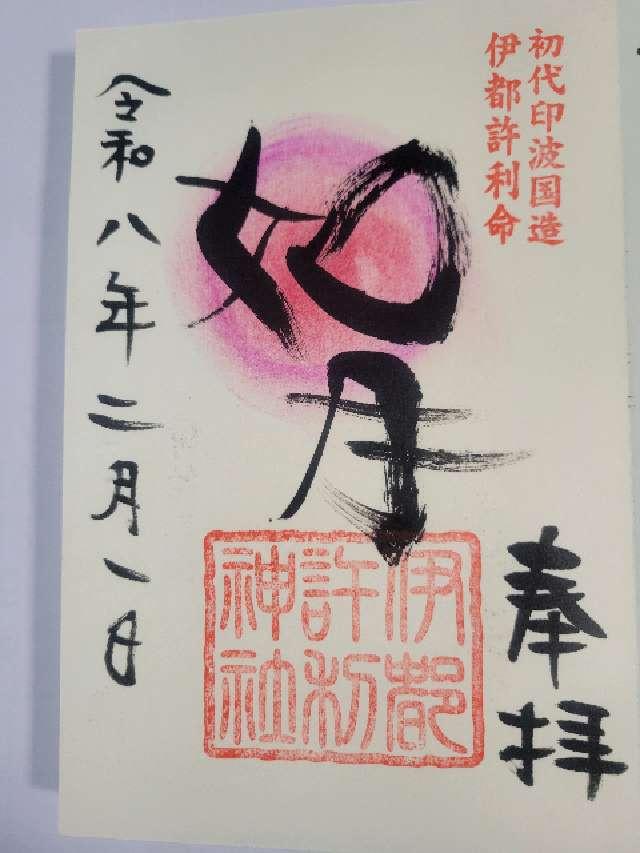 初代印波国造
伊都許利命
奉拝
如月
伊都
許利
神社
令和八年二月一日